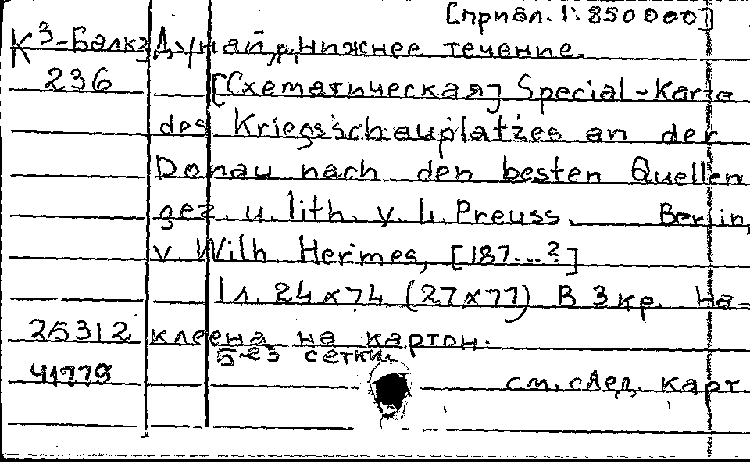 [прибл. 1:850 000]
К³-Балк3 Дунай, р, Нижнее течение.
236 [Схематическая] Special-Karte
des Kriegsschauplatzes an der
Donau nach den besten Quellen
gez. u. lith. v. L. Preuss. Berlin,
v Wilh Hermes, [187...?]
1 л. 24×74 (27×77) В 3 кр. На-
25312 клеена на картон.
Без сетки.
41779 см. след. карт.